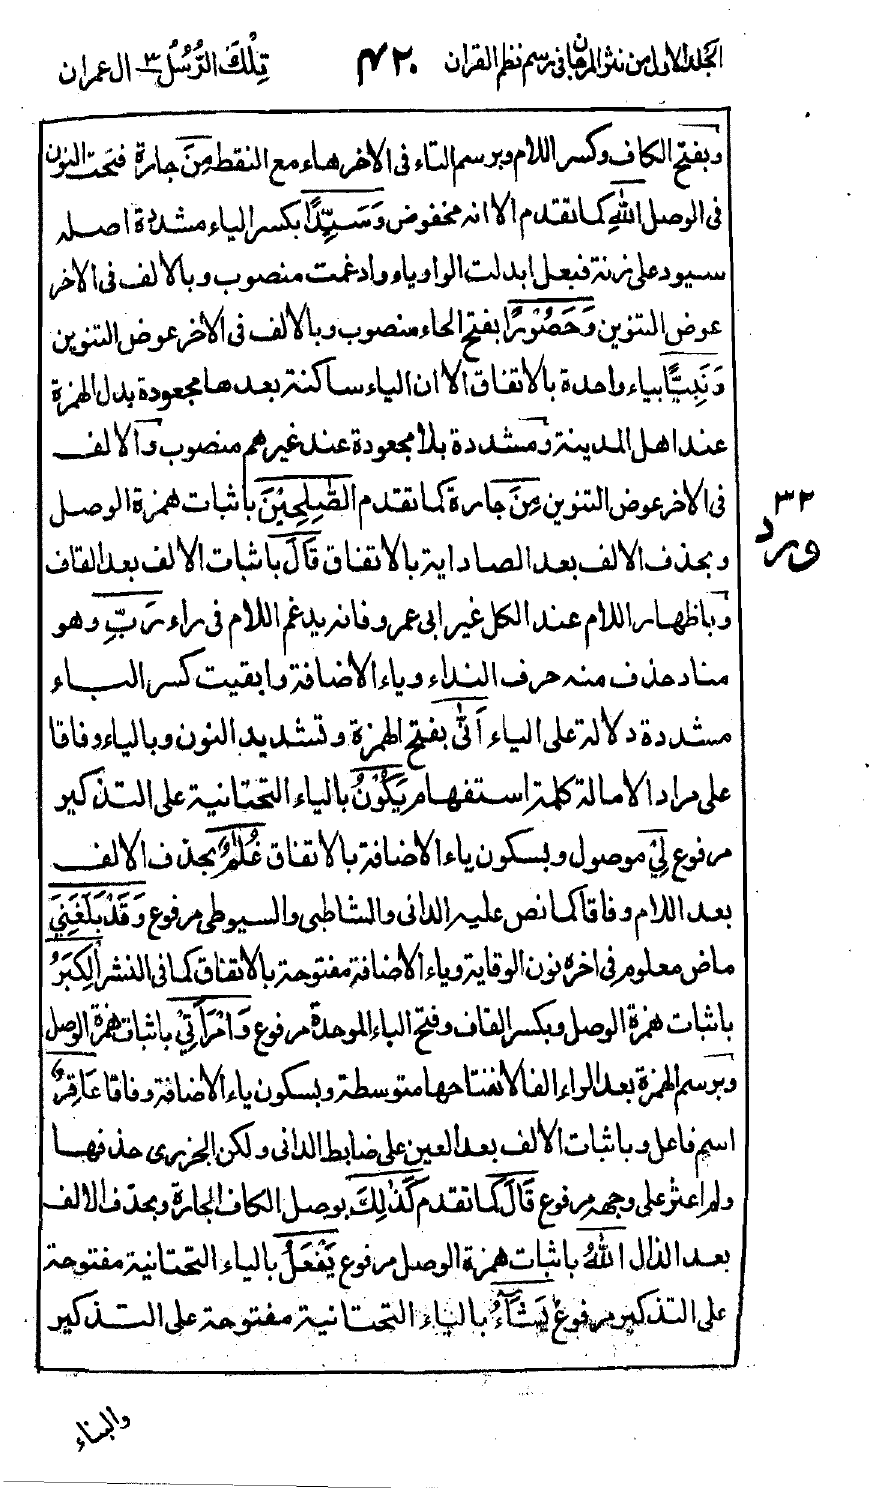 الجلد الاول من نثر المرجان فى رسم نظم القران ٤٢٠ تِلْكَ الرُّسُلُ ٣ ال عمران
وبفتح الكاف وكسر اللام وبرسم التاء فى الاخر هاء مع النقط مِنَ جارة فتحت النون
فى الوصل اللهِ كما تقدم الا انه مخفوض وَسَيِّدًا بكسر الياء مشددة اصله
سيود على زنة فيعل ابدلت الواو ياء وادغمت منصوب وبالالف فى الاخر
عوض التنوين وَحَصُوْرًا بفتح الحاء منصوب وبالالف فى الاخر عوض التنوين
وَنَبِيًّا بياء واحدة بالاتفاق الا ان الياء ساكنة بعدها مجعودة بدل الهمزة
عند اهل المدينة ومشددة بلا مجعودة عند غيرهم منصوب والالف
فى الاخر عوض التنوين مِنَ جارة كما تقدم الصّٰلِحِيْنَ باثبات همزة الوصل
وبحذف الالف بعد الصاد اية بالاتفاق قَالَ باثبات الالف بعد القاف
وباظهار اللام عند الكل غير ابى عمرو فانه يدغم اللام فى راء رَبِّ وهو
مناد حذف منه حرف النداء وياء الاضافة وابقيت كسر الباء
مشددة دلالة على الياء اَنّٰى بفتح الهمزة وتشديد النون وبالياء وفاقا
على مراد الامالة كلمة استفهام يَكُوْنُ بالياء التحتانية على التذكير
مرفوع لِيْ موصول وبسكون ياء الاضافة بالاتفاق غُلٰمٌ بحذف الالف
بعد اللام وفاقا كما نص عليه الدانى والشاطبى والسيوطى مرفوع وَقَدْ بَلَغَنِيَ
ماض معلوم فى اخره نون الوقاية وياء الاضافة مفتوحة بالاتفاق كما فى النشر الْكِبَرُ
باثبات همزة الوصل وبكسر القاف وفتح الباء الموحدة مرفوع وَامْرَاَتِيْ باثبات همزة الوصل
وبرسم الهمزة بعد الراء الفا لانفتاحها متوسطة وبسكون ياء الاضافة وفاقا عَاقِرٌ
اسم فاعل وباثبات الالف بعد العين على ضابط الدانى ولكن الجزرى حذفها
ولم اعثر على وجهه مرفوع قَالَ كما تقدم كَذٰلِكَ بوصل الكاف الجارة وبحذف الالف
بعد الذال اللهُ باثبات همزة الوصل مرفوع يَفْعَلُ بالياء التحتانية مفتوحة
على التذكير مرفوع يَشَآءُ بالياء التحتانية مفتوحة على التذكير
٣٢
ورد
والبناء